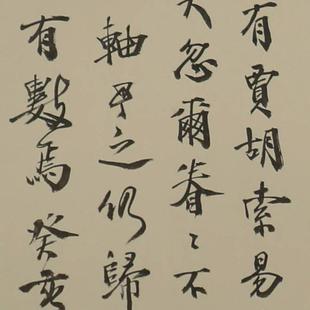 有賈胡索易
忽爾眷〻不
軸之仍歸
有數焉癸亥